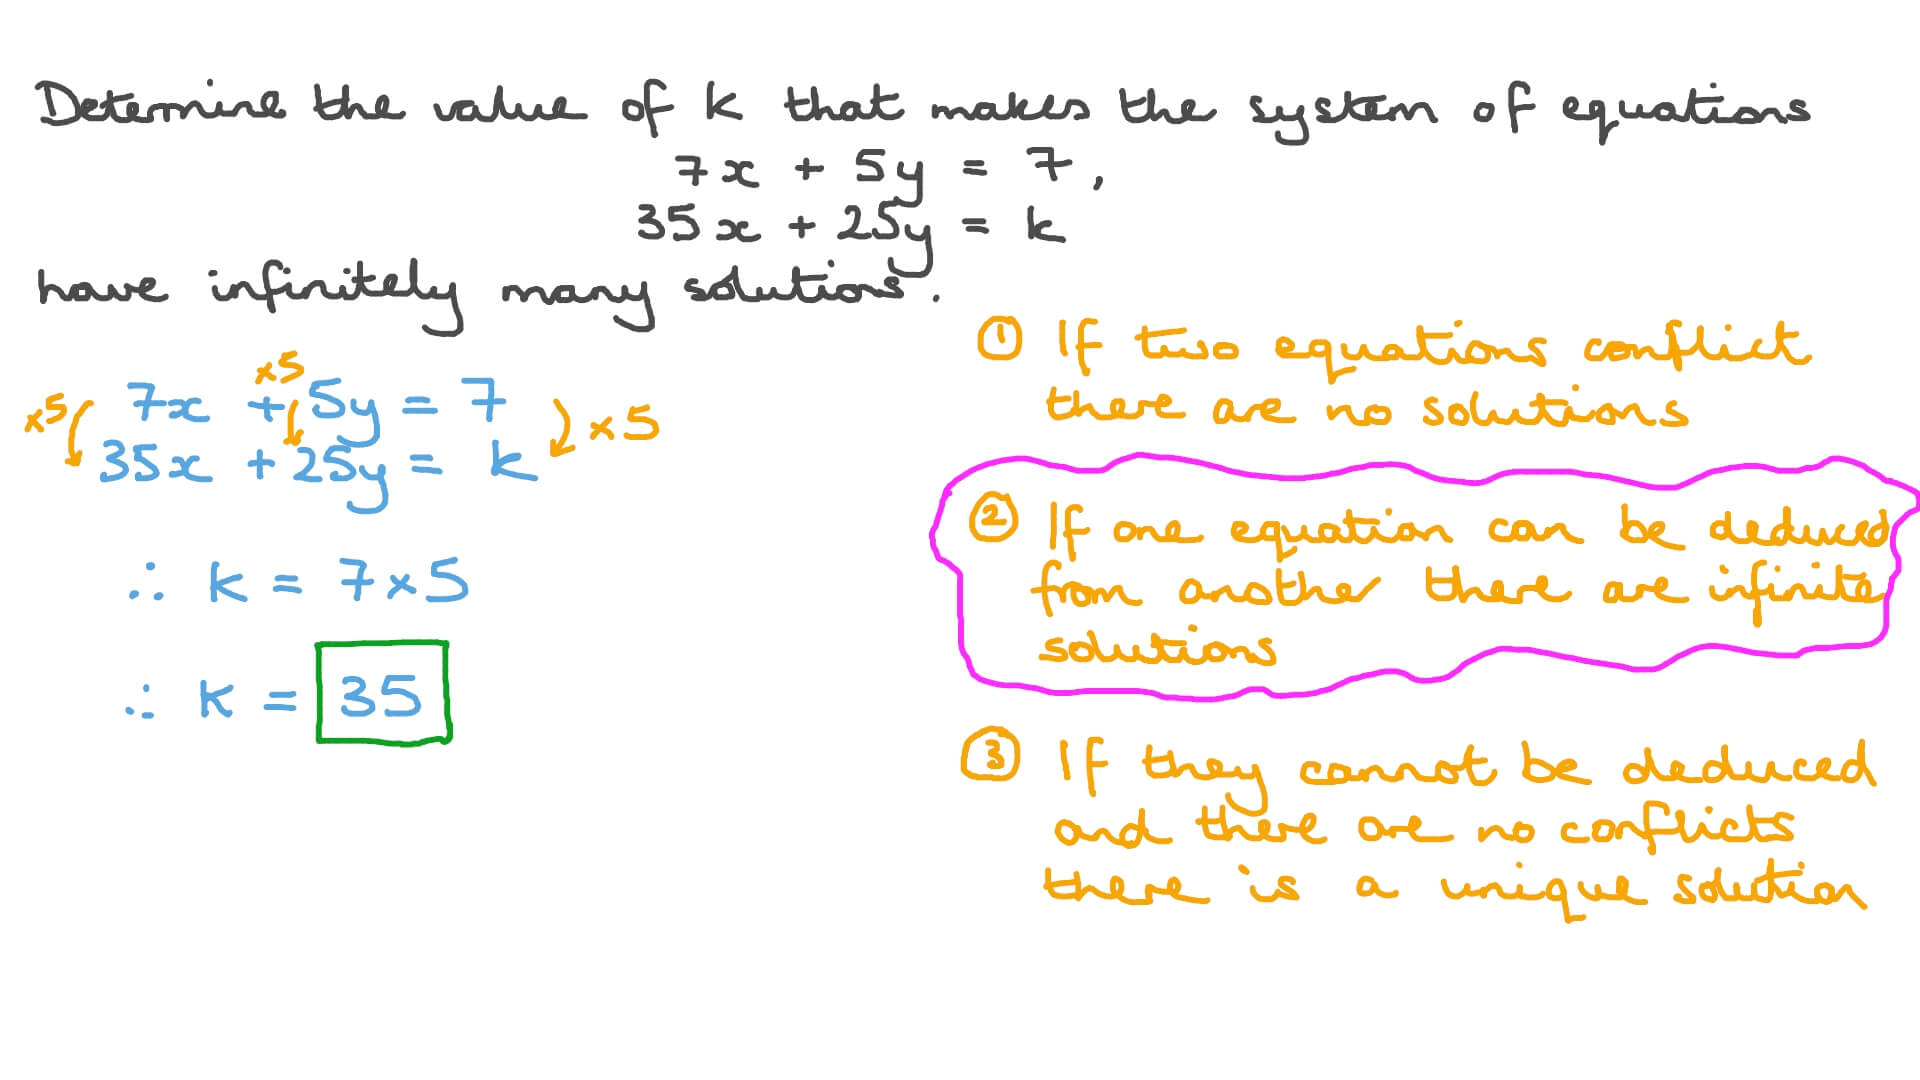 Determine the value of k that makes the system of equations
7x + 5y = 7,
35x + 25y = k
have infinitely many solutions.
① If two equations conflict
there are no solutions
×5
×5 7x + 5y = 7 ×5
35x + 25y = k
② If one equation can be deduced
from another there are infinite
solutions
∴ k = 7×5
∴ k = 35
③ If they cannot be deduced
and there are no conflicts
there is a unique solution